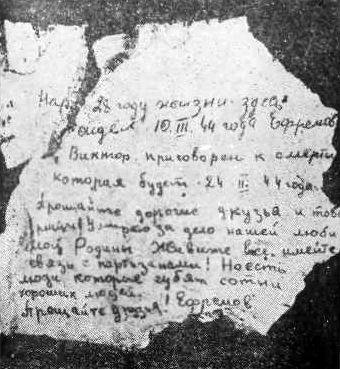 На 28 году жизни здесь
сидел 10.III.44 года Ефремов
Виктор. приговорен к смерти
которая будет 24 II. 44 года.
Прощайте дорогие друзья и това
рищи! Умираю за дело нашей люби
мой Родины Живите все, имейте
связи с партизанами!
люди, которые губят сотни
хороших людей.
Прощайте друзья! Ефремов